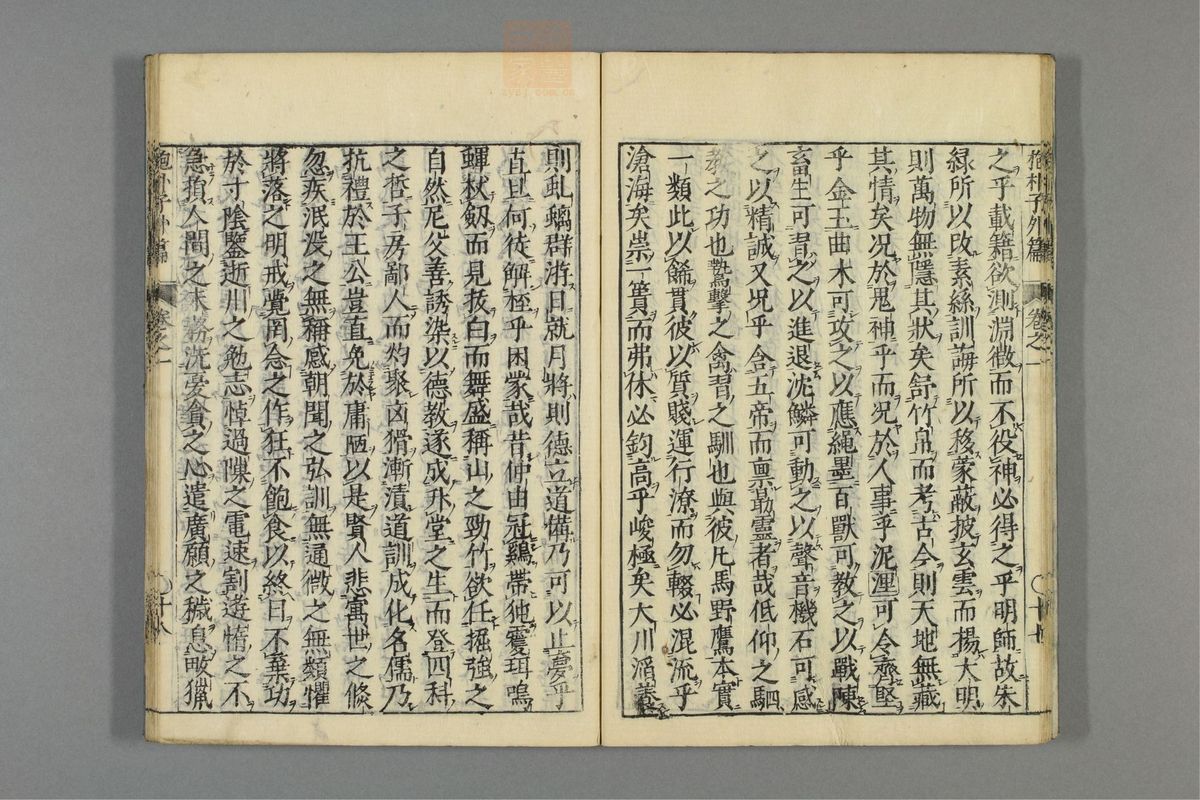 抱朴子外篇 卷之一 〇十七
之乎載籍欲測淵微而不役神必得之乎明師故朱
緑所以改素絲訓誨所以移蒙蔽披玄雲而揚大明
則萬物無隱其狀矣舒竹帛而考古今則天地無藏
其情矣况於鬼神乎而况於人事乎泥涅可令齊堅
乎金玉曲木可攻之以應繩墨百獸可教之以戰陳
畜生可習之以進退沈鱗可動之以聲音機石可感
之以精誠又况乎含五帝而禀最靈者哉低仰之駟
教之功也鷙擊之禽習之馴也與彼凡馬野鷹本實
一類此以餙貴彼以質賤運行潦而勿輟必混流乎
滄海矣崇一簣而弗休必鈞高乎峻極矣大川滔瀁
則虬螭群游日就月將則德立道備乃可以止夢乎
吉旦何徒解桎乎困蒙哉昔仲由冠鷄帶㹠霻珥鳴
蟬杖劔而見拔白而舞盛稱山之勁竹欲任掘強之
自然尼父善誘染以德教遂成升堂之生而登四科
之哲子房鄙人而灼聚凶猾漸漬道訓成化名儒乃
抗禮於王公豈直免於庸陋以是賢人悲寓世之倏
忽疾泯没之無稱感朝聞之弘訓無通微之無類懼
將落之明戒覺罔念之作狂不飽食以終日不棄功
於寸陰鑒逝川之勉志悼過隙之電速割遊惰之不
急損人間之末務洗憂貧之心遣廣願之穢息畋獵
抱朴子外篇 卷之一 〇十八